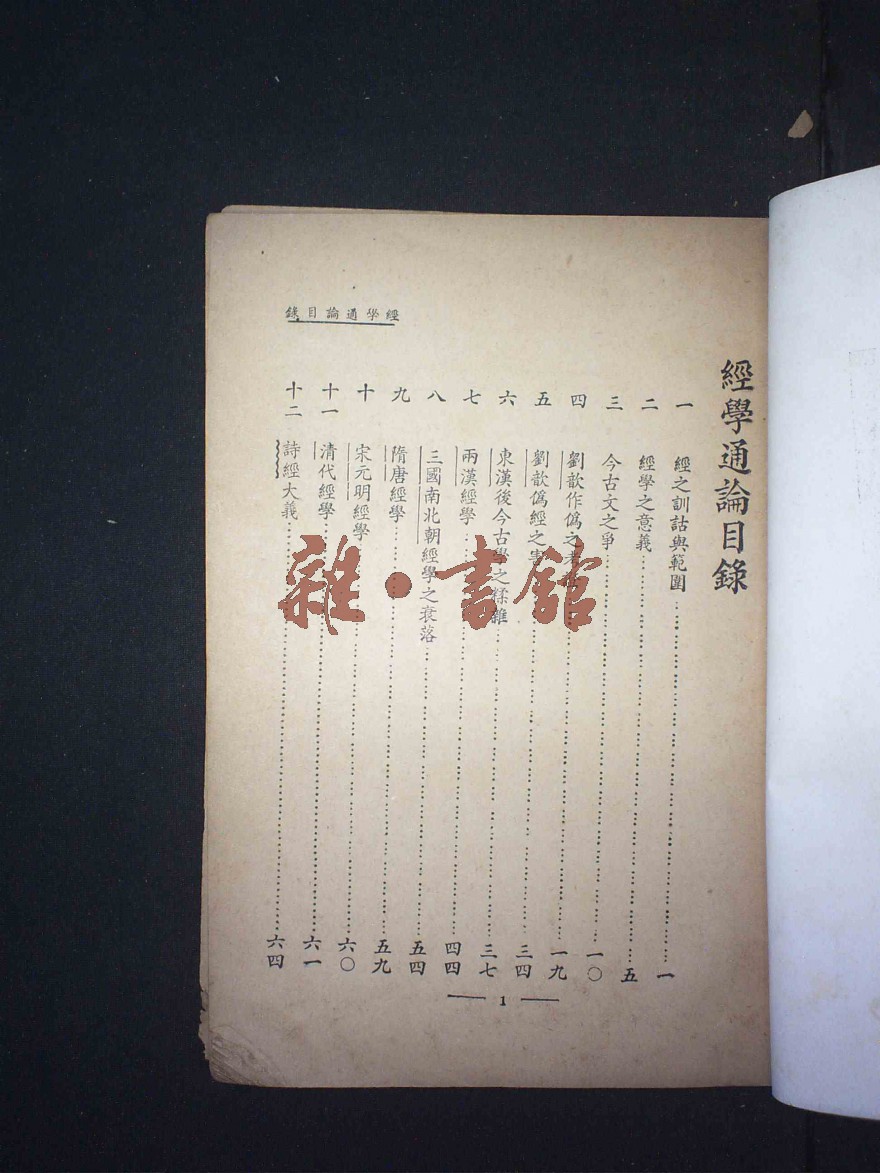 經學通論目錄
一 經之訓詁與範圍……一
二 經學之意義……五
三 今古文之爭……一〇
四 劉歆作僞之……一九
五 劉歆僞經之……三四
六 東漢後今古學之糅雜……三七
七 兩漢經學……四四
八 三國南北朝經學之衰落……五四
九 隋唐經學……五九
十 宋元明經學……六〇
十一 清代經學……六一
十二 詩經大義……六四
經學通論目錄
1
雜·書館